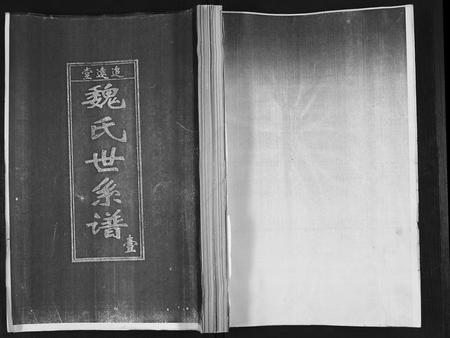 追遠堂
魏氏世系谱
壹